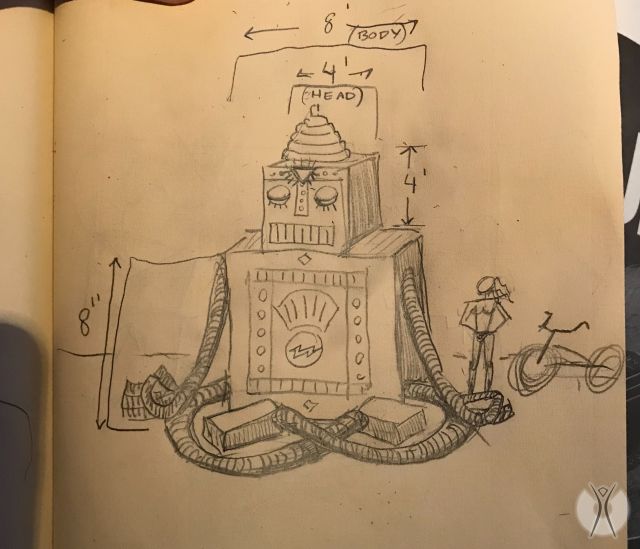 8'
(BODY)
4'
(HEAD)
4'
8"